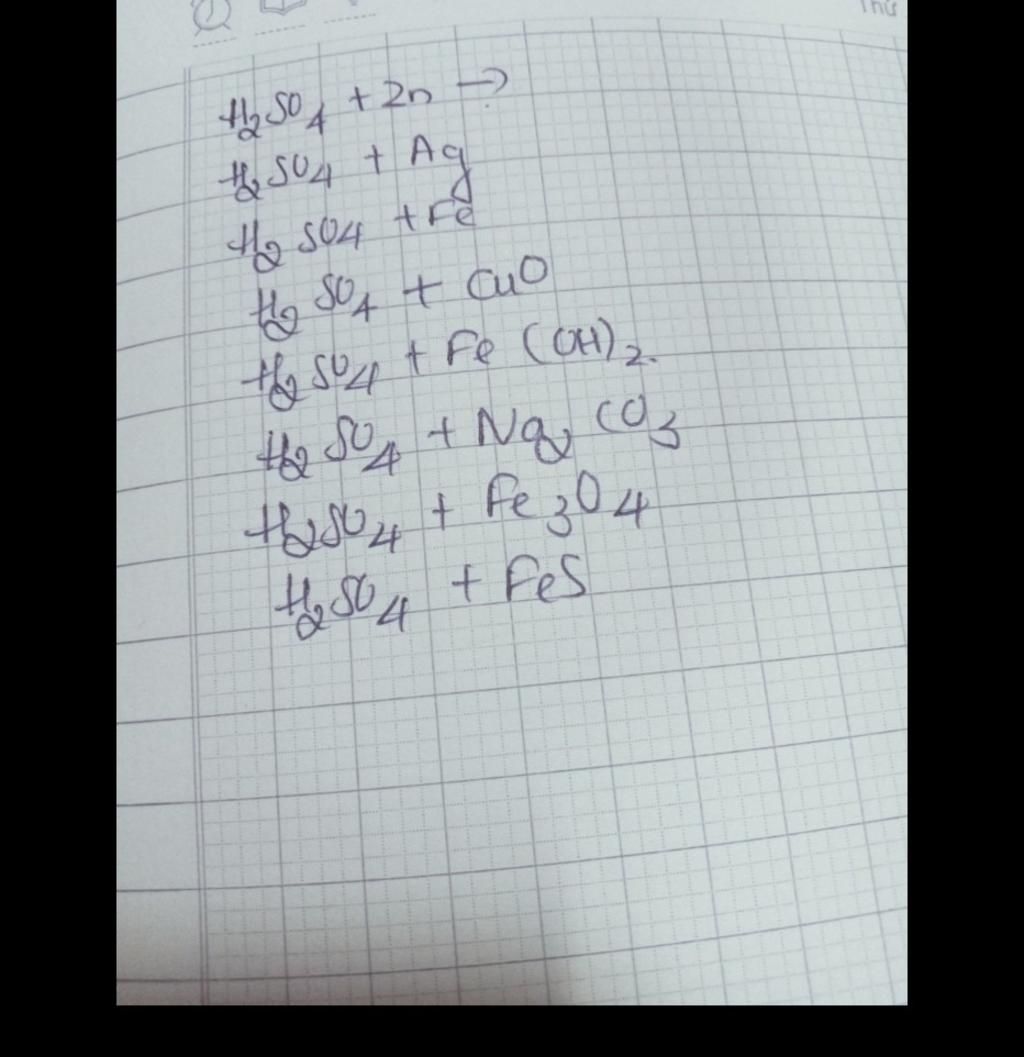 Thứ
H₂SO₄ + Zn →
H₂SO₄ + Ag
H₂SO₄ + Fe
H₂SO₄ + CuO
H₂SO₄ + Fe(OH)₂.
H₂SO₄ + Na₂CO₃
H₂SO₄ + Fe₃O₄
H₂SO₄ + FeS